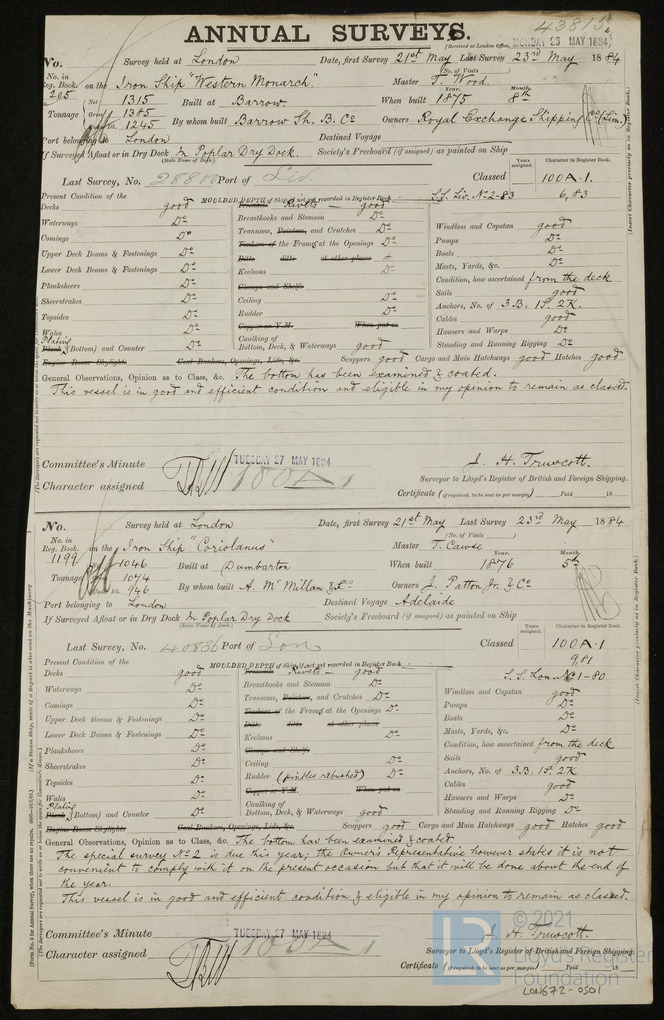 ANNUAL SURVEYS.
43815
(Received at London Office, MONDAY 26 MAY 1884
No. Survey held at London Date, first Survey 21st May Last Survey 23rd May 1884
(No. of Visits)
No. in Reg. Book. 205 on the Iron Ship "Western Monarch" Master T. Wood
Year. Month.
Tonnage Net 1315 Built at Barrow. When built 1875 8th
Gross 1385
1245 By whom built Barrow Sh. B. Co Owners Royal Exchange Shipping Co (Lim.)
Port belonging to London Destined Voyage
If Surveyed Afloat or in Dry Dock In Poplar Dry Dock. Society's Freeboard (if assigned) as painted on Ship
(State Name of Dock.)
Years assigned. Character in Register Book.
Last Survey, No. 28800 Port of Liv. Classed 100A.1.
S.S. Liv. No. 2-83 6,83
Present Condition of the MOULDED DEPTH of Ship if not yet recorded in Register Book
Decks good Rivets good
Waterways Do Breasthooks and Stemson Do
Comings Do Transoms, Pointers, and Crutches Do
Upper Deck Beams & Fastenings Do Timbers of the Frame at the Openings Do
Lower Deck Beams & Fastenings Do Ditto ditto at other places
Planksheers Do Keelsons Do
Sheerstrakes Do Clamps and Shelfs
Topsides Do Ceiling Do
Wales Do Rudder Do
Plating Copper or Y.M. When put on
Plank (Bottom) and Counter Do Caulking of Bottom, Deck, & Waterways good
Windlass and Capstan good
Pumps Do
Boats Do
Masts, Yards, &c. Do
Condition, how ascertained from the deck
Sails good
Anchors, No. of 3B. 1S. 2K.
Cables good
Hawsers and Warps Do
Standing and Running Rigging Do
Engine Room Skylights Coal Bunkers, Openings, Lids, &c. Scuppers good Cargo and Main Hatchways good Hatches good
General Observations, Opinion as to Class, &c. The bottom has been examined & coated.
This vessel is in good and efficient condition and eligible in my opinion to remain as classed.
Committee's Minute TUESDAY 27 MAY 1884 J. H. Truscott.
Character assigned 100A1 Surveyor to Lloyd's Register of British and Foreign Shipping.
Certificate (if required, to be sent as per margin) Paid 18
No. Survey held at London Date, first Survey 21st May Last Survey 23rd May 1884
(No. of Visits)
No. in Reg. Book. 1199 on the Iron Ship "Coriolanus" Master T. Cawse
Year. Month.
Tonnage 1046 Built at Dumbarton When built 1876 5th
1074
946 By whom built A. McMillan & Co Owners J. Patton Jr. & Co
Port belonging to London Destined Voyage Adelaide
If Surveyed Afloat or in Dry Dock In Poplar Dry Dock Society's Freeboard (if assigned) as painted on Ship
(State Name of Dock.)
Years assigned. Character in Register Book.
Last Survey, No. 40836 Port of Lon Classed 100A.1
9,81
S.S. Lon No 1-80
Present Condition of the MOULDED DEPTH of Ship if not yet recorded in Register Book
Decks good Rivets good
Waterways Do Breasthooks and Stemson Do
Comings Do Transoms, Pointers, and Crutches Do
Upper Deck Beams & Fastenings Do Timbers of the Frame at the Openings Do
Lower Deck Beams & Fastenings Do Ditto ditto at other places
Planksheers Do Keelsons Do
Sheerstrakes Do Clamps and Shelfs
Topsides Do Ceiling Do
Wales Do Rudder (pintles rebushed) Do
Plating Copper or Y.M. When put on
Plank (Bottom) and Counter Do Caulking of Bottom, Deck, & Waterways good
Windlass and Capstan good
Pumps Do
Boats Do
Masts, Yards, &c. Do
Condition, how ascertained from the deck
Sails good
Anchors, No. of 3B. 1S. 2K
Cables good
Hawsers and Warps Do
Standing and Running Rigging Do
Engine Room Skylights Coal Bunkers, Openings, Lids, &c. Scuppers good Cargo and Main Hatchways good Hatches good
General Observations, Opinion as to Class, &c. The bottom has been examined & coated
The special survey No 2 is due this year; the Owner's Representative however states it is not
convenient to comply with it on the present occasion but that it will be done about the end of
the year.
This vessel is in good and efficient condition & eligible in my opinion to remain as classed.
Committee's Minute TUESDAY 27 MAY 1884 J. H. Truscott.
Character assigned 100A1 Surveyor to Lloyd's Register of British and Foreign Shipping.
Certificate (if required, to be sent as per margin) Paid 18
© 2021
Lloyd's Register
Foundation
LON672-0501